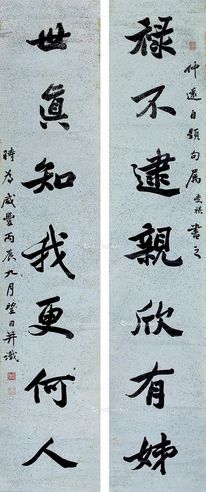 仲遠自題句屬
書之
禄不逮親欣有姊
世眞知我更何人
時為咸豐丙辰九月望日并識